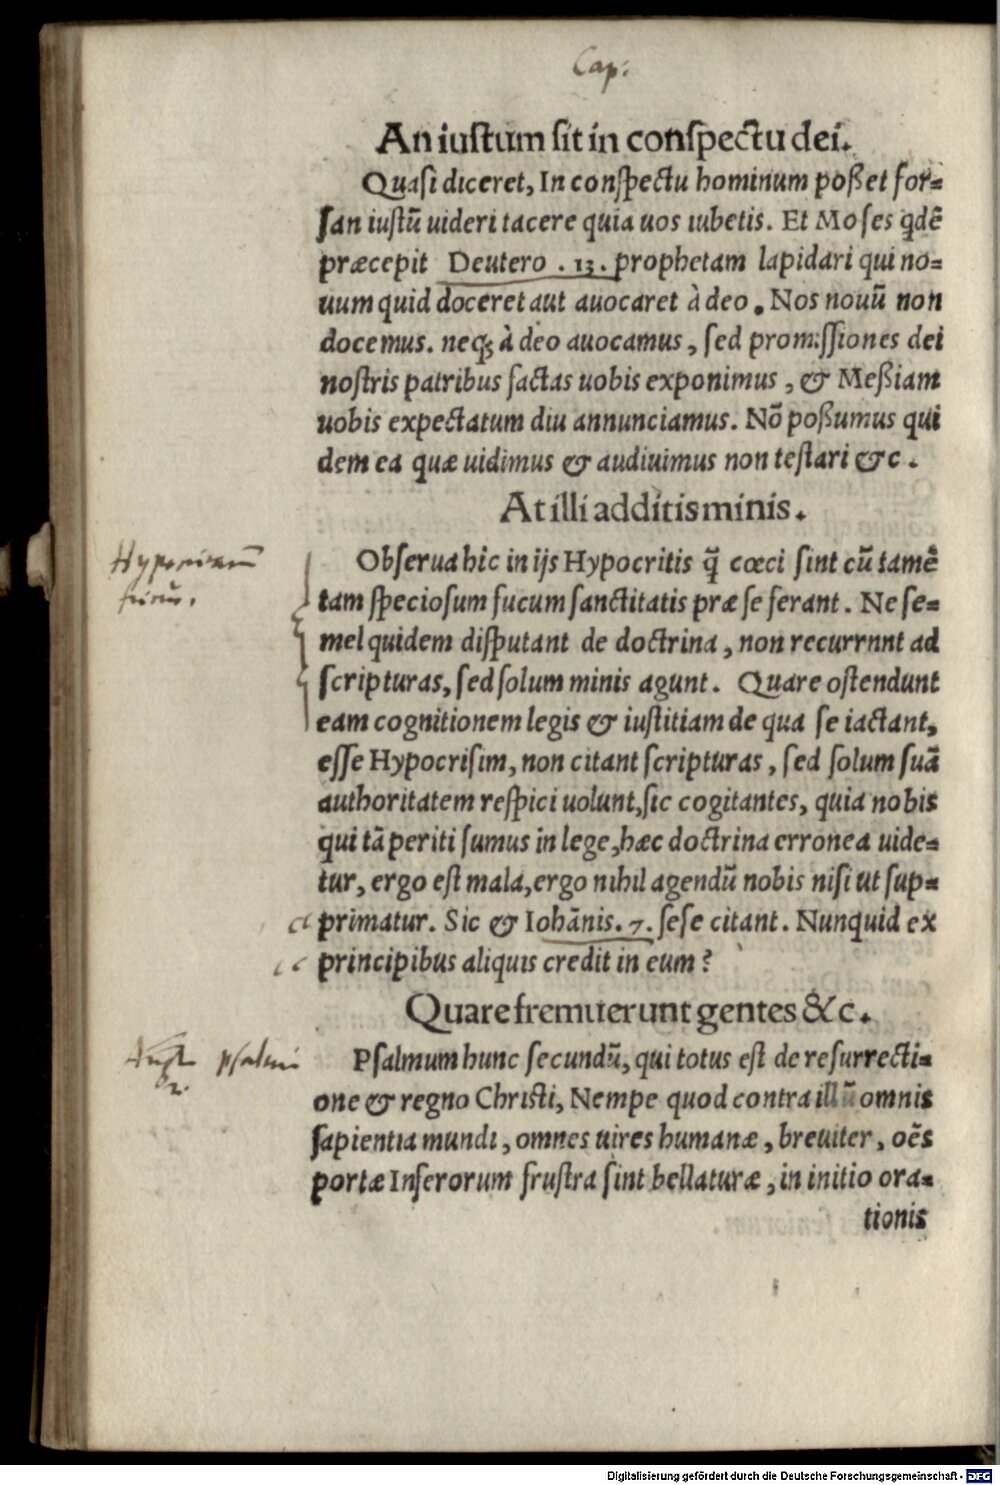 Cap:
An iustum sit in conspectu dei.
Quasi diceret, In conspectu hominum poßet for=
san iustũ uideri tacere quia uos iubetis. Et Moses qdẽ
præcepit Deutero . 13. prophetam lapidari qui no=
uum quid doceret aut auocaret à deo. Nos nouũ non
docemus. neq; à deo auocamus, sed promissiones dei
nostris patribus factas uobis exponimus, & Meßiam
uobis expectatum diu annunciamus. Nõ poßumus qui
dem ea quæ uidimus & audiuimus non testari &c.
At illi additis minis.
Obserua hic in ijs Hypocritis q̃ cœci sint cũ tamẽ
tam speciosum fucum sanctitatis præ se ferant. Ne se=
mel quidem disputant de doctrina, non recurrnnt ad
scripturas, sed solum minis agunt. Quare ostendunt
eam cognitionem legis & iustitiam de qua se iactant,
esse Hypocrisim, non citant scripturas, sed solum suã
authoritatem respici uolunt, sic cogitantes, quia nobis
qui tã periti sumus in lege, hæc doctrina erronea uide=
tur, ergo est mala, ergo nihil agendũ nobis nisi ut sup=
primatur. Sic & Iohãnis. 7. sese citant. Nunquid ex
principibus aliquis credit in eum?
Quare fremuerunt gentes &c.
psalmi
2.
Psalmum hunc secundũ, qui totus est de resurrecti=
one & regno Christi, Nempe quod contra illũ omnis
sapientia mundi, omnes uires humanæ, breuiter, oẽs
portæ Inferorum frustra sint bellaturæ, in initio ora=
tionis
Digitalisierung gefördert durch die Deutsche Forschungsgemeinschaft - DFG